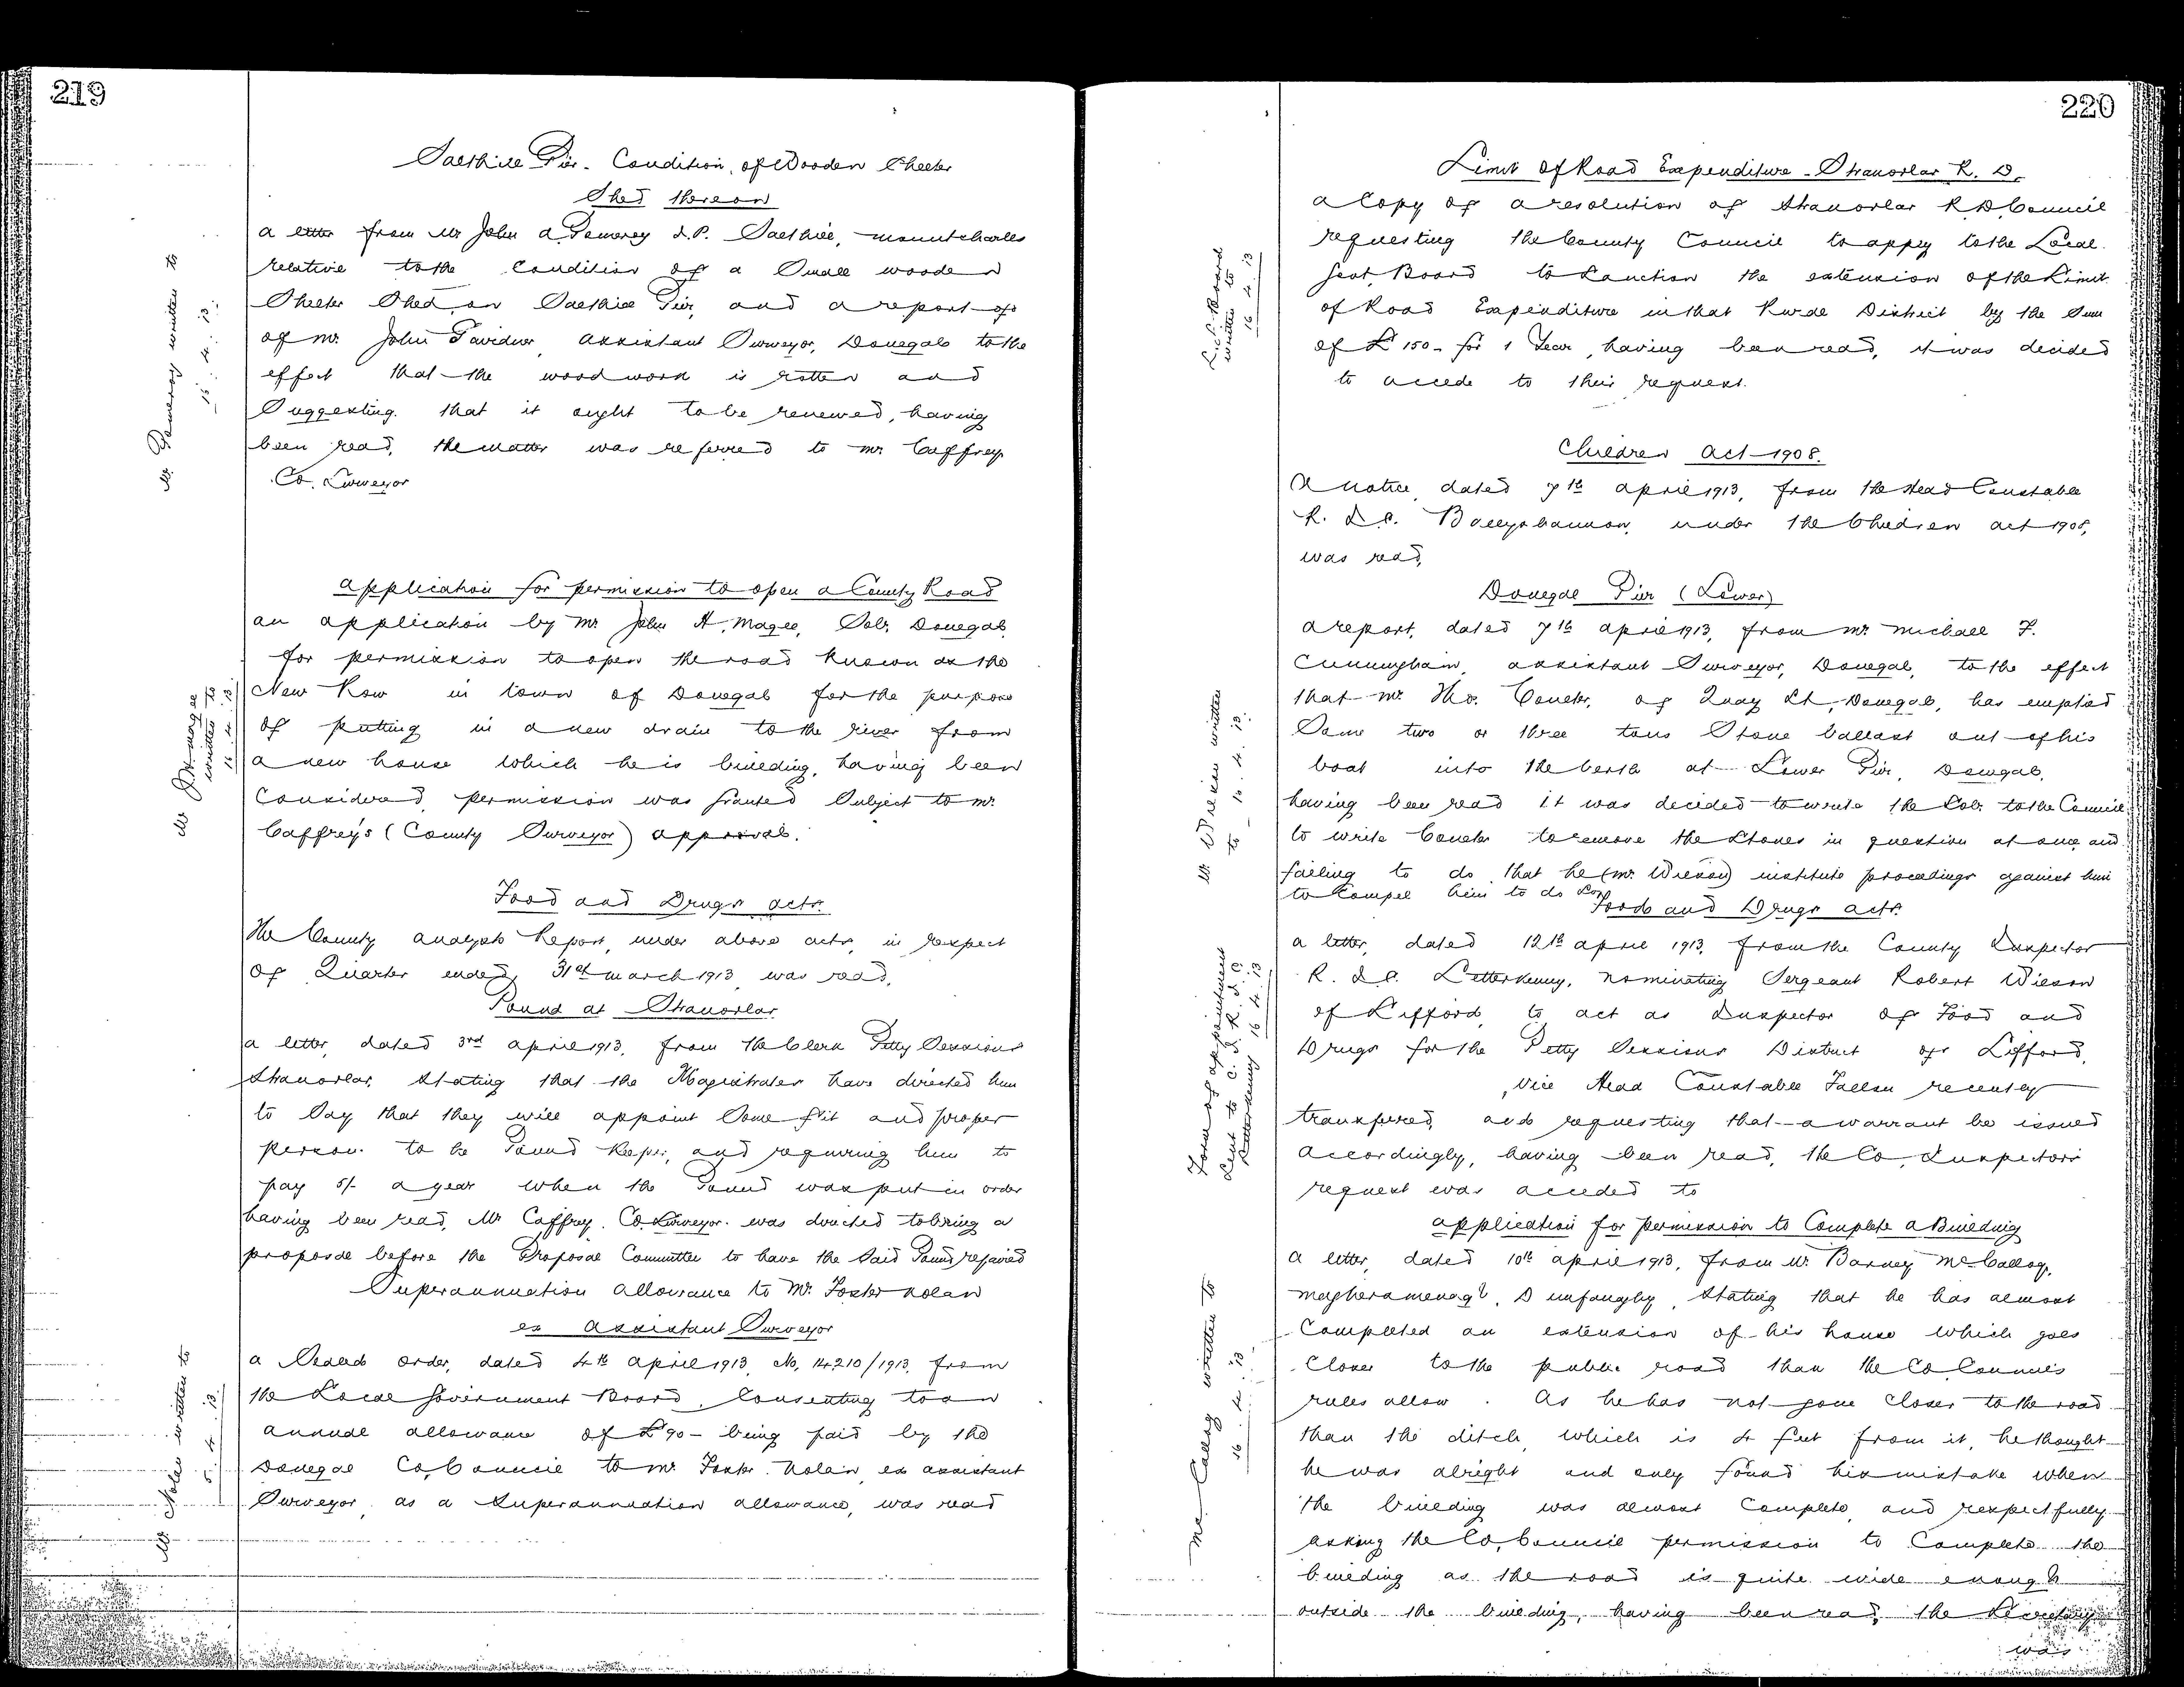 219
Salthill Pier. Condition of Wooden Shelter
Shed thereon
a letter from Mr John a Pomeroy J.P. Salthill, mountcharles
relative to the Condition of a Small wooden
Shelter Shed on Salthill Pier, and a report of
of Mr. John assistant Surveyor, Donegal to the
effect that the woodwork is rotten and
Suggesting that it ought to be renewed, having
been read, the matter was referred to Mr Caffrey
Co. Surveyor
Mr Pomeroy written to
15. 4. 13.
application for permission to open a County Road
an application by Mr John A. Magee, Solr. Donegal
for permission to open the road known as the
New Row in town of Donegal for the purpose
of putting in a new drain to the river from
a new house which he is building, having been
Considered permission was granted Subject to Mr.
Caffrey's (County Surveyor) approval.
Mr Magee written to
4. 13
Food and Drugs acts.
The County analysts Report, under above acts, in respect
of Quarter ended, 31st march 1913 was read.
Pound at Stranorlar
a letter, dated 3rd april 1913, from the Clerk Petty Sessions
Stranorlar, Stating that the Magistrates have directed him
to Say that they will appoint Some fit and proper
person to be Pound Keeper, and requiring him to
pay 5/- a year when the Pound was put in order
having been read, Mr Caffrey Co. Surveyor was directed to bring a
proposal before the Proposal Committee to have the Said Pound repaired
Superannuation allowance to Mr. Foster Nolan
ex assistant Surveyor
a Sealed order, dated 4th april 1913, No. 14210/1913, from
the Local Government Board, Consenting to an
annual allowance of £90 - being paid by the
Donegal Co. Council to Mr. Foster Nolan ex assistant
Surveyor as a Superannuation allowance, was read
Mr Nolan written to
15. 4. 13.
220
Limit of Road Expenditure - Stranorlar R. D.
a Copy of a resolution of Stranorlar R. D. Council
requesting the County Council to apply to the Local
Govt. Board to Sanction the extension of the Limit
of Road Expenditure in that Rural District by the Sum
of £150 - for 1 Year, having been read, it was decided
to accede to their request.
L. G. Board
written to
16. 4. 13
Children Act - 1908.
A notice, dated 7th april 1913, from the Head Constable
R. I. C. Ballyshannon, under the Children act 1908,
was read,
Donegal Pier (Lower)
a report, dated 7th april 1913, from Mr michael F.
Cunningham, assistant Surveyor, Donegal, to the effect
that Mr. Thos. of Quay St. Donegal, has emptied
Some two or three tons Stone ballast out of his
boat into the berth at Lower Pier, Donegal.
having been read it was decided to write the Solr. to the Council
to write to remove the Stones in question at once and
failing to do that he (Mr. Wilson) institute proceedings against him
to Compel him to do So,
Mr Wilson written
to - 16. 4. 13.
Food and Drugs acts.
a letter, dated 12th april 1913, from the County Inspector
R. I. C. Letterkenny, nominating Sergeant Robert Wilson
of Lifford, to act as Inspector of Food and
Drugs for the Petty Sessions District of Lifford,
vice Head Constable Fallon recently
transferred, and requesting that a warrant be issued
accordingly, having been read, the Co. Inspectors
request was acceded to
Form of appointment
Sent to C. I. R. I. C.
Letterkenny 16 4. 13
application for permission to Complete a Building
a letter, dated 10th april 1913, from Mr. Barney McCallog,
Dunfanaghy, Stating that he has almost
Completed an extension of his house which goes
Closer to the public road than the Co. Councils
rules allow. As he has not gone Closer to the road
than the ditch which is 4 feet from it, he thought
he was alright and only found his mistake when
the building was almost Complete, and respectfully
asking the Co. Council permission to Complete the
building as the road is quite wide enough
outside the building, having been read, the Secretary
was
McCallog written to
16. 4. 13.